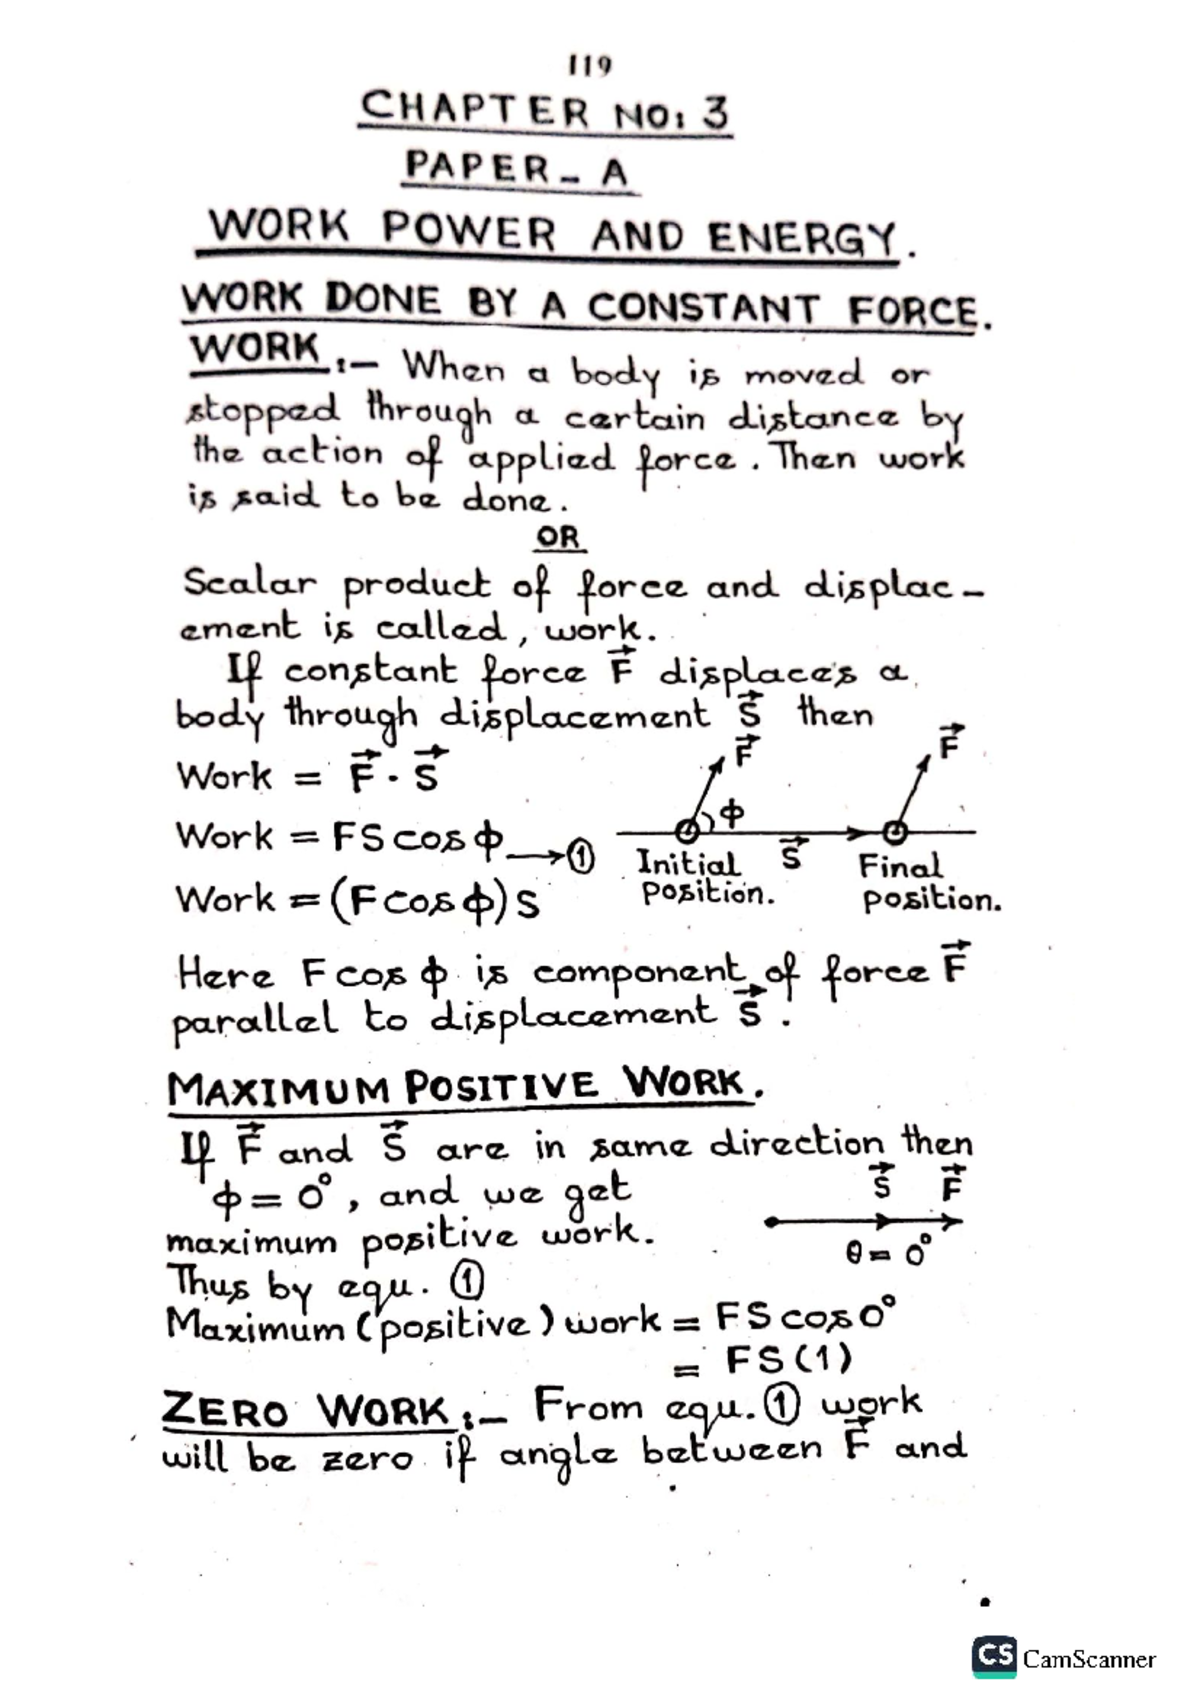 119
CHAPTER NO: 3
PAPER - A
WORK POWER AND ENERGY.
WORK DONE BY A CONSTANT FORCE.
WORK :- When a body is moved or
stopped through a certain distance by
the action of applied force. Then work
is said to be done.
OR
Scalar product of force and displac-
ement is called, work.
If constant force F⃗ displaces a
body through displacement S⃗ then
Work = F⃗ · S⃗
F⃗
F⃗
Work = FS cos ϕ → ①
ϕ
S⃗
Initial position.
Final position.
Work = (F cos ϕ) S
Here F cos ϕ is component of force F⃗
parallel to displacement S⃗ .
MAXIMUM POSITIVE WORK.
If F⃗ and S⃗ are in same direction then
ϕ = 0°, and we get
S⃗ F⃗
maximum positive work.
θ = 0°
Thus by equ. ①
Maximum (positive) work = FS cos 0°
= FS (1)
ZERO WORK :- From equ. ① work
will be zero if angle between F⃗ and
CS CamScanner